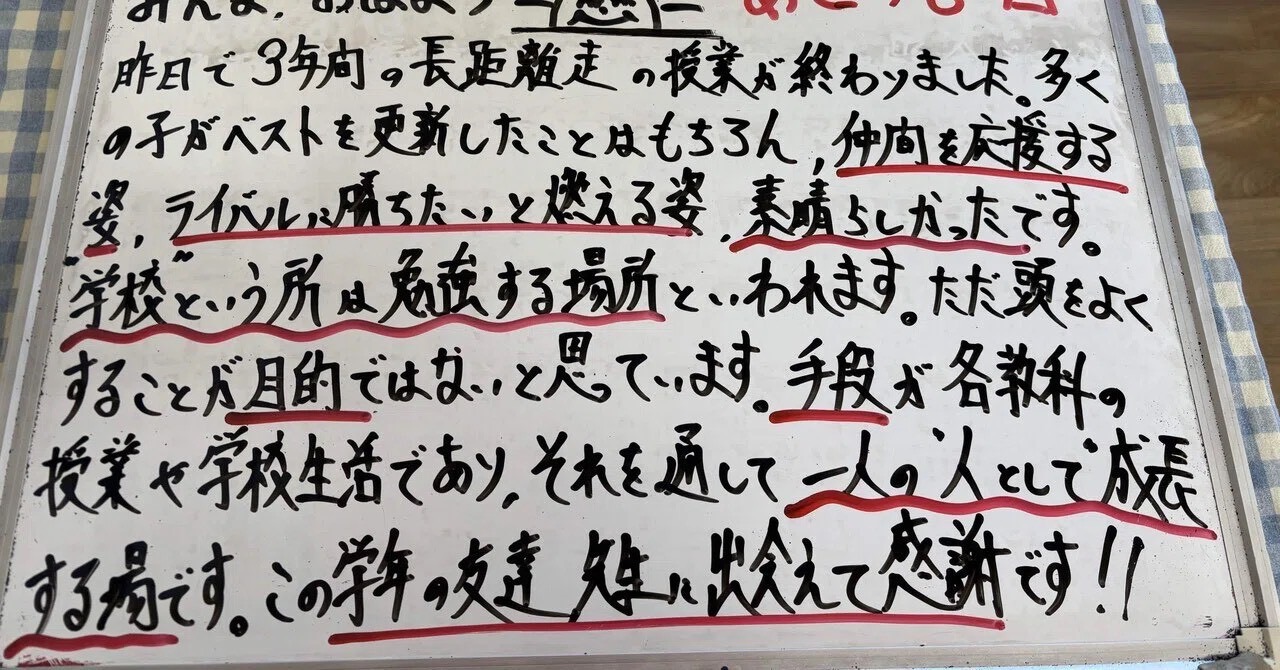 みんな、おはよう
昨日で3年間の長距離走の授業が終わりました。多く
の子がベストを更新したことはもちろん，仲間を応援する
姿，ライバルに勝ちたいと燃える姿，素晴らしかったです。
"学校"という所は勉強する場所といわれます。ただ頭をよく
することが目的ではないと思っています。手段が各教科の
授業や学校生活であり，それを通して一人の"人として"成長
する場です。この学年の友達 先生に出会えて感謝です!!